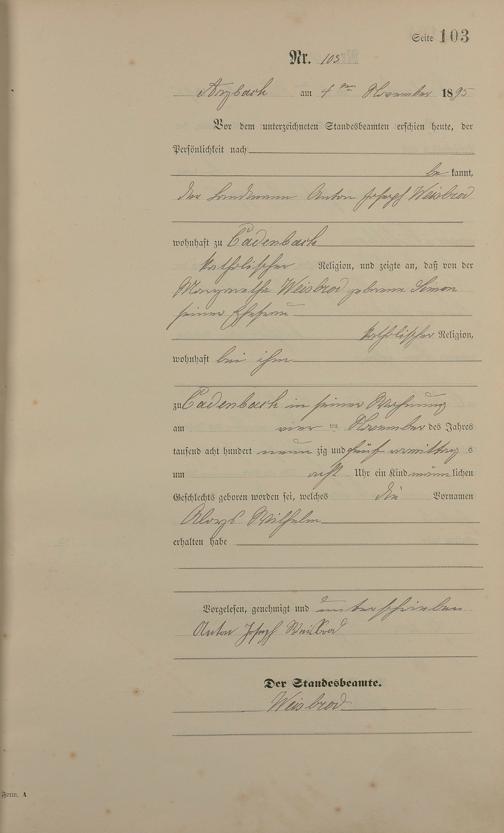 Seite 103
Nr. 103
Arzbach am 4ten November 1895
Vor dem unterzeichneten Standesbeamten erschien heute, der
Persönlichkeit nach
be kannt,
der Landmann Anton Joseph Weisbrod
wohnhaft zu Cadenbach
katholischer Religion, und zeigte an, daß von der
Weisbrod geborene Simon
seiner Ehefrau
katholischer Religion,
wohnhaft bei ihm
zu Cadenbach in seiner Wohnung
am vier ten November des Jahres
tausend acht hundert neun zig und fünf vormittag s
um acht Uhr ein Kind männ lichen
Geschlechts geboren worden sei, welches die Vornamen
Aloys Wilhelm
erhalten habe
Vorgelesen, genehmigt und unterschrieben
Anton Joseph Weisbrod
Der Standesbeamte.
Weisbrod
Form. A